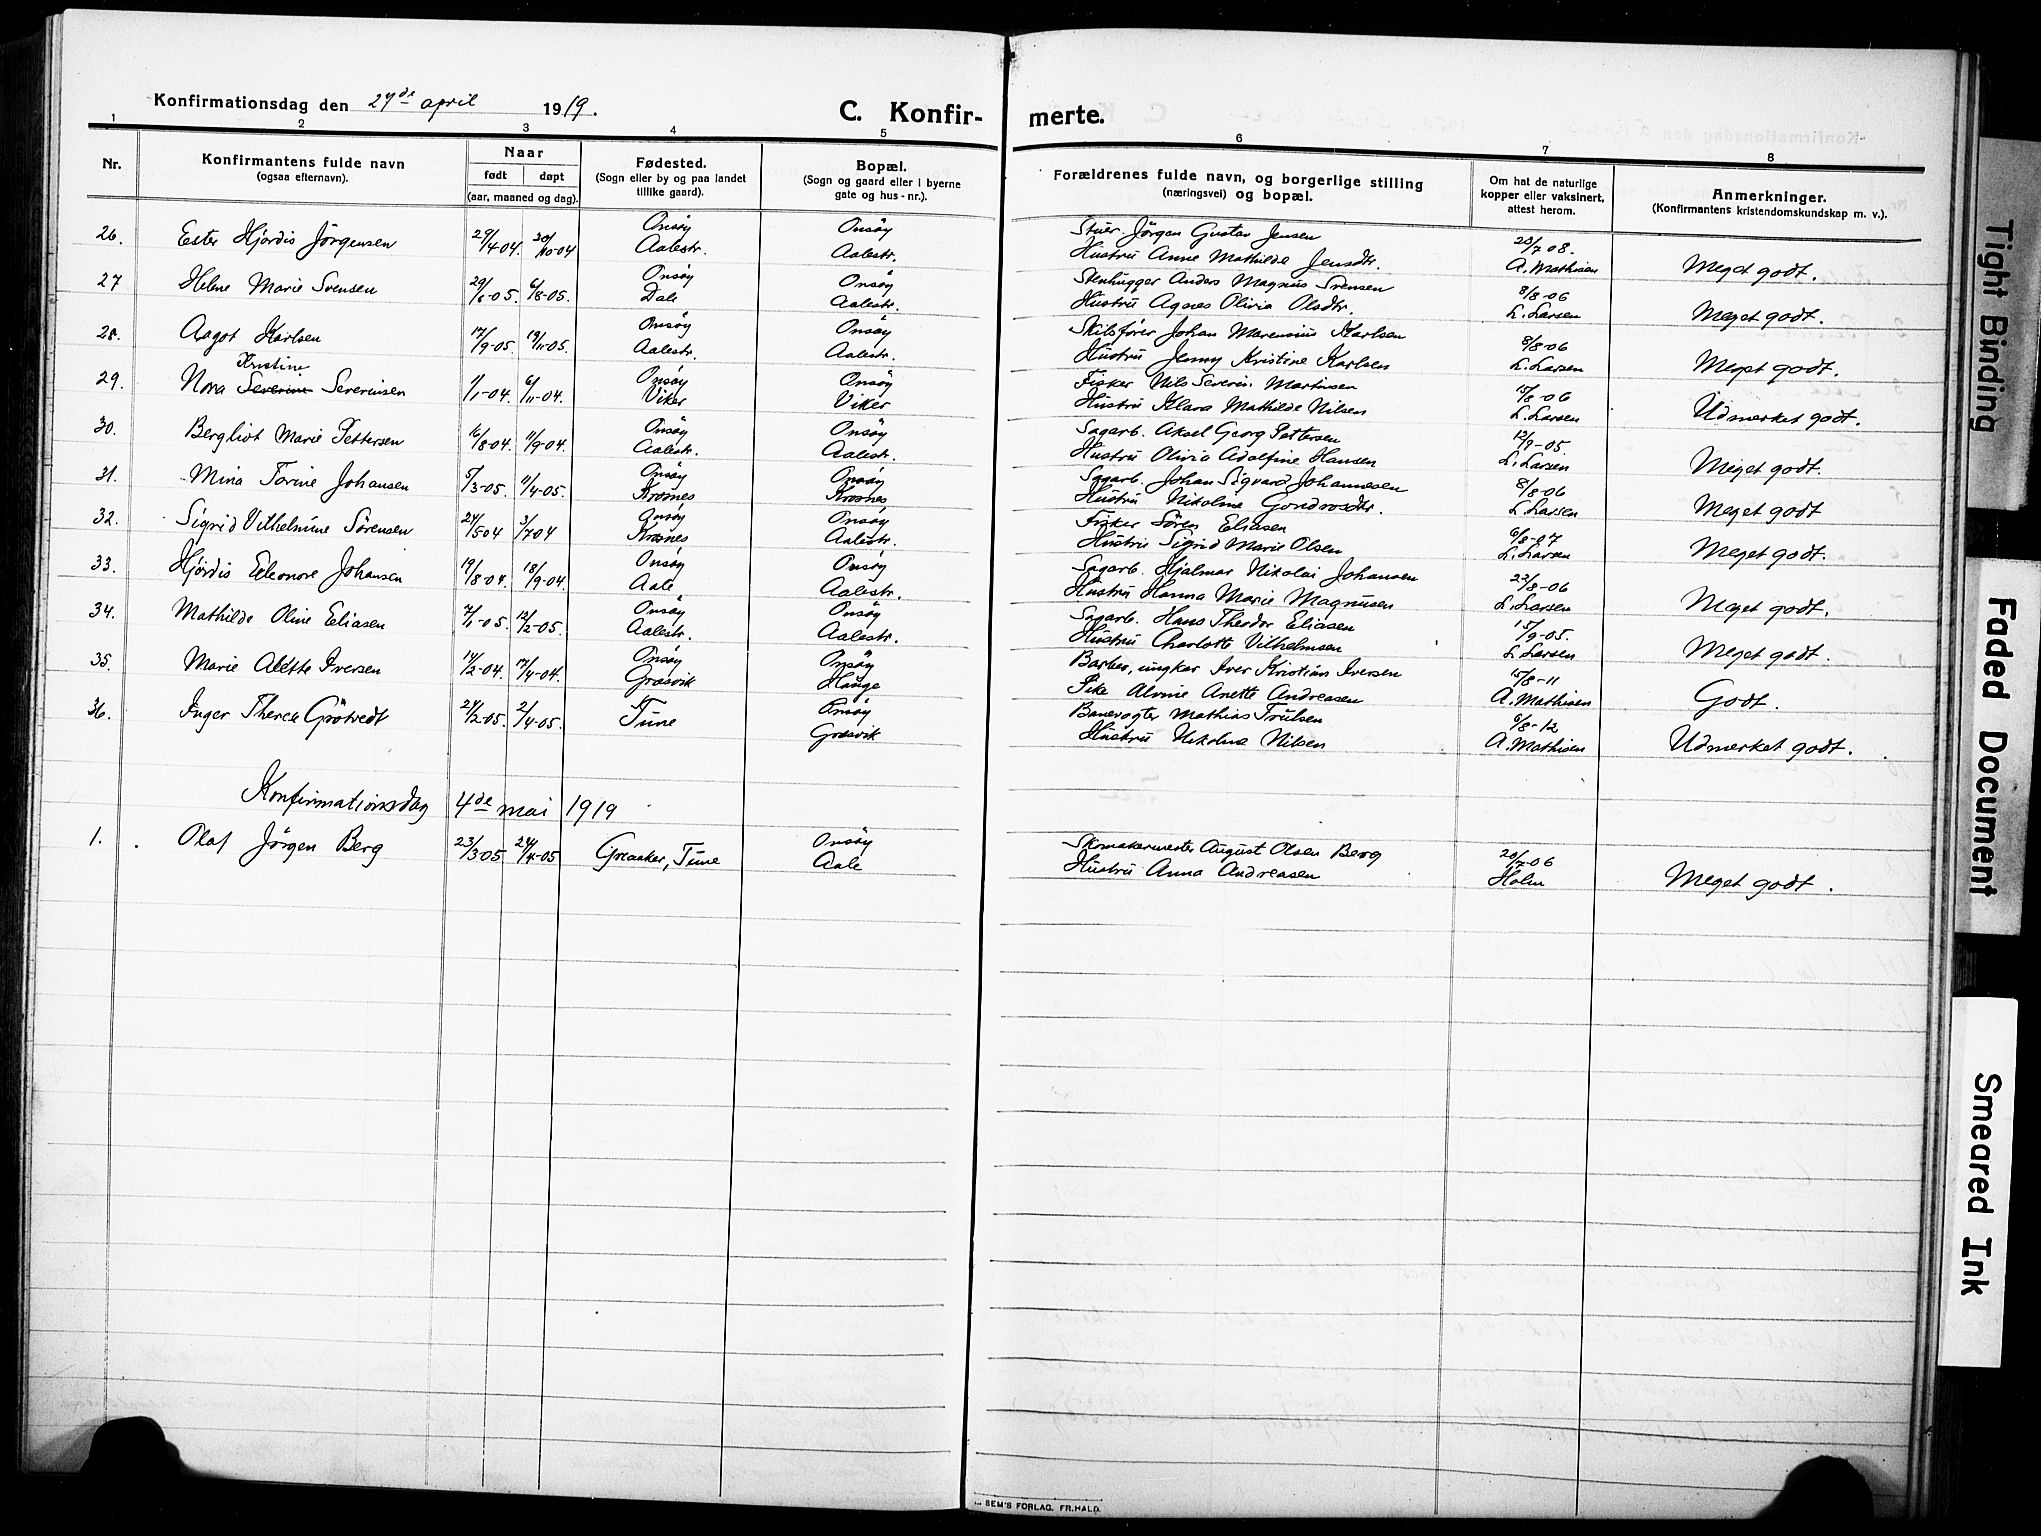 Konfirmationsdag den 27de april 1919.
C. Konfir-
merte.
1 2 3 4 5 6 7 8
Nr.
Konfirmantens fulde navn
(ogsaa efternavn).
Naar
født døpt
(aar, maaned og dag).
Fødested.
(Sogn eller by og paa landet
tillike gaard).
Bopæl.
(Sogn og gaard eller i byerne
gate og hus-nr.).
Forældrenes fulde navn, og borgerlige stilling
(næringsvei) og bopæl.
Om hat de naturlige
kopper eller vaksinert,
attest herom.
Anmerkninger.
(Konfirmantens kristendomskundskap m. v.).
26. Ester Hjørdis Jørgensen 29/4 04. 30/10-04 Onsøy Aalestr. Onsøy Aalestr. Stuer. Jørgen Gustav Jensen
Hustru Anne Mathilde Jensdtr. 23/7 08. A. Mathisen Meget godt.
27 Helene Marie Svensen 29/6-05. 6/8-05. Onsøy Dale Onsøy Aalestr. Stenhugger Anders Magnus Svensen
Hustru Agnes Olivia Olsdtr. 8/8-06 L. Larsen Meget godt.
28. Aagot Karlsen 17/9-05. 19/11-05. Onsøy Aalestr. Onsøy Aalestr. Skibsfører Johan Marensius Karlsen
Hustru Jenny Kristine Karlsen 8/8-06 L. Larsen Meget godt.
Kristine
29. Nora Severine Severinsen 1/1-04. 6/11-04. Onsøy Viker Onsøy Viker Fisker Nils Severin Martinsen
Hustru Klara Mathilde Nilsen 15/8-06 L. Larsen Udmerket godt.
30. Bergliot Marie Pettersen 16/8-04. 11/9-04. Onsøy Aalestr. Onsøy Aalestr. Sagarb. Aksel Georg Pettersen
Hustru Olivia Adolfine Hansen 12/9-05. L. Larsen Meget godt.
31. Mina Torine Johansen 5/3-05. 11/4-05. Onsøy Krosnes Onsøy Krosnes Sagarb. Johan Sigvard Johannesen
Hustru Nikoline 8/8-06 L. Larsen Meget godt
32. Sigrid Vilhelmine Sørensen 24/5 04 3/7 04 Onsøy Krosnes Onsøy Aalestr. Fisker Søren Eliasen
Hustru Sigrid Marie Olsen 6/8-07 L. Larsen Meget godt.
33. Hjørdis Eleonore Johansen 19/8-04. 18/9-04. Onsøy Aale Onsøy Aalestr. Sagarb. Hjalmar Nikolai Johansen
Hustru Hanna Marie Magnusen 22/8-06 L. Larsen Meget godt.
34. Mathilde Oline Eliasen 7/1-05. 12/2-05. Onsøy Aalestr. Onsøy Aalestr. Sagarb. Hans Theodor Eliasen
Hustru Charlotte Vilhelmsen 15/9-05. L. Larsen Meget godt.
35. Marie Alette Iversen 14/2-04. 17/4-04. Onsøy Græsvik Onsøy Hauge Barber, ungkar Iver Kristian Iversen
Pike Alvine Anette Andreasen 15/8-11 A. Mathisen Godt.
36. Inger Therese Grötvedt 21/2-05. 2/4-05. Tune Onsøy Græsvik Banevogter Mathias Trulsen
Hustru Nikoline Nilsen 6/8-12 A. Mathisen Udmerket godt.
Konfirmationsdag 4de mai 1919
1. Olaf Jørgen Berg 23/3 05 24/4-05 Greaaker, Tune Onsøy Aale Skomakermester August Olsen Berg
Hustru Anna Andreasen 20/7-06 Holm Meget godt.
SEM'S FORLAG, FR.HALD.
Tight Binding
Faded Document
Smeared Ink